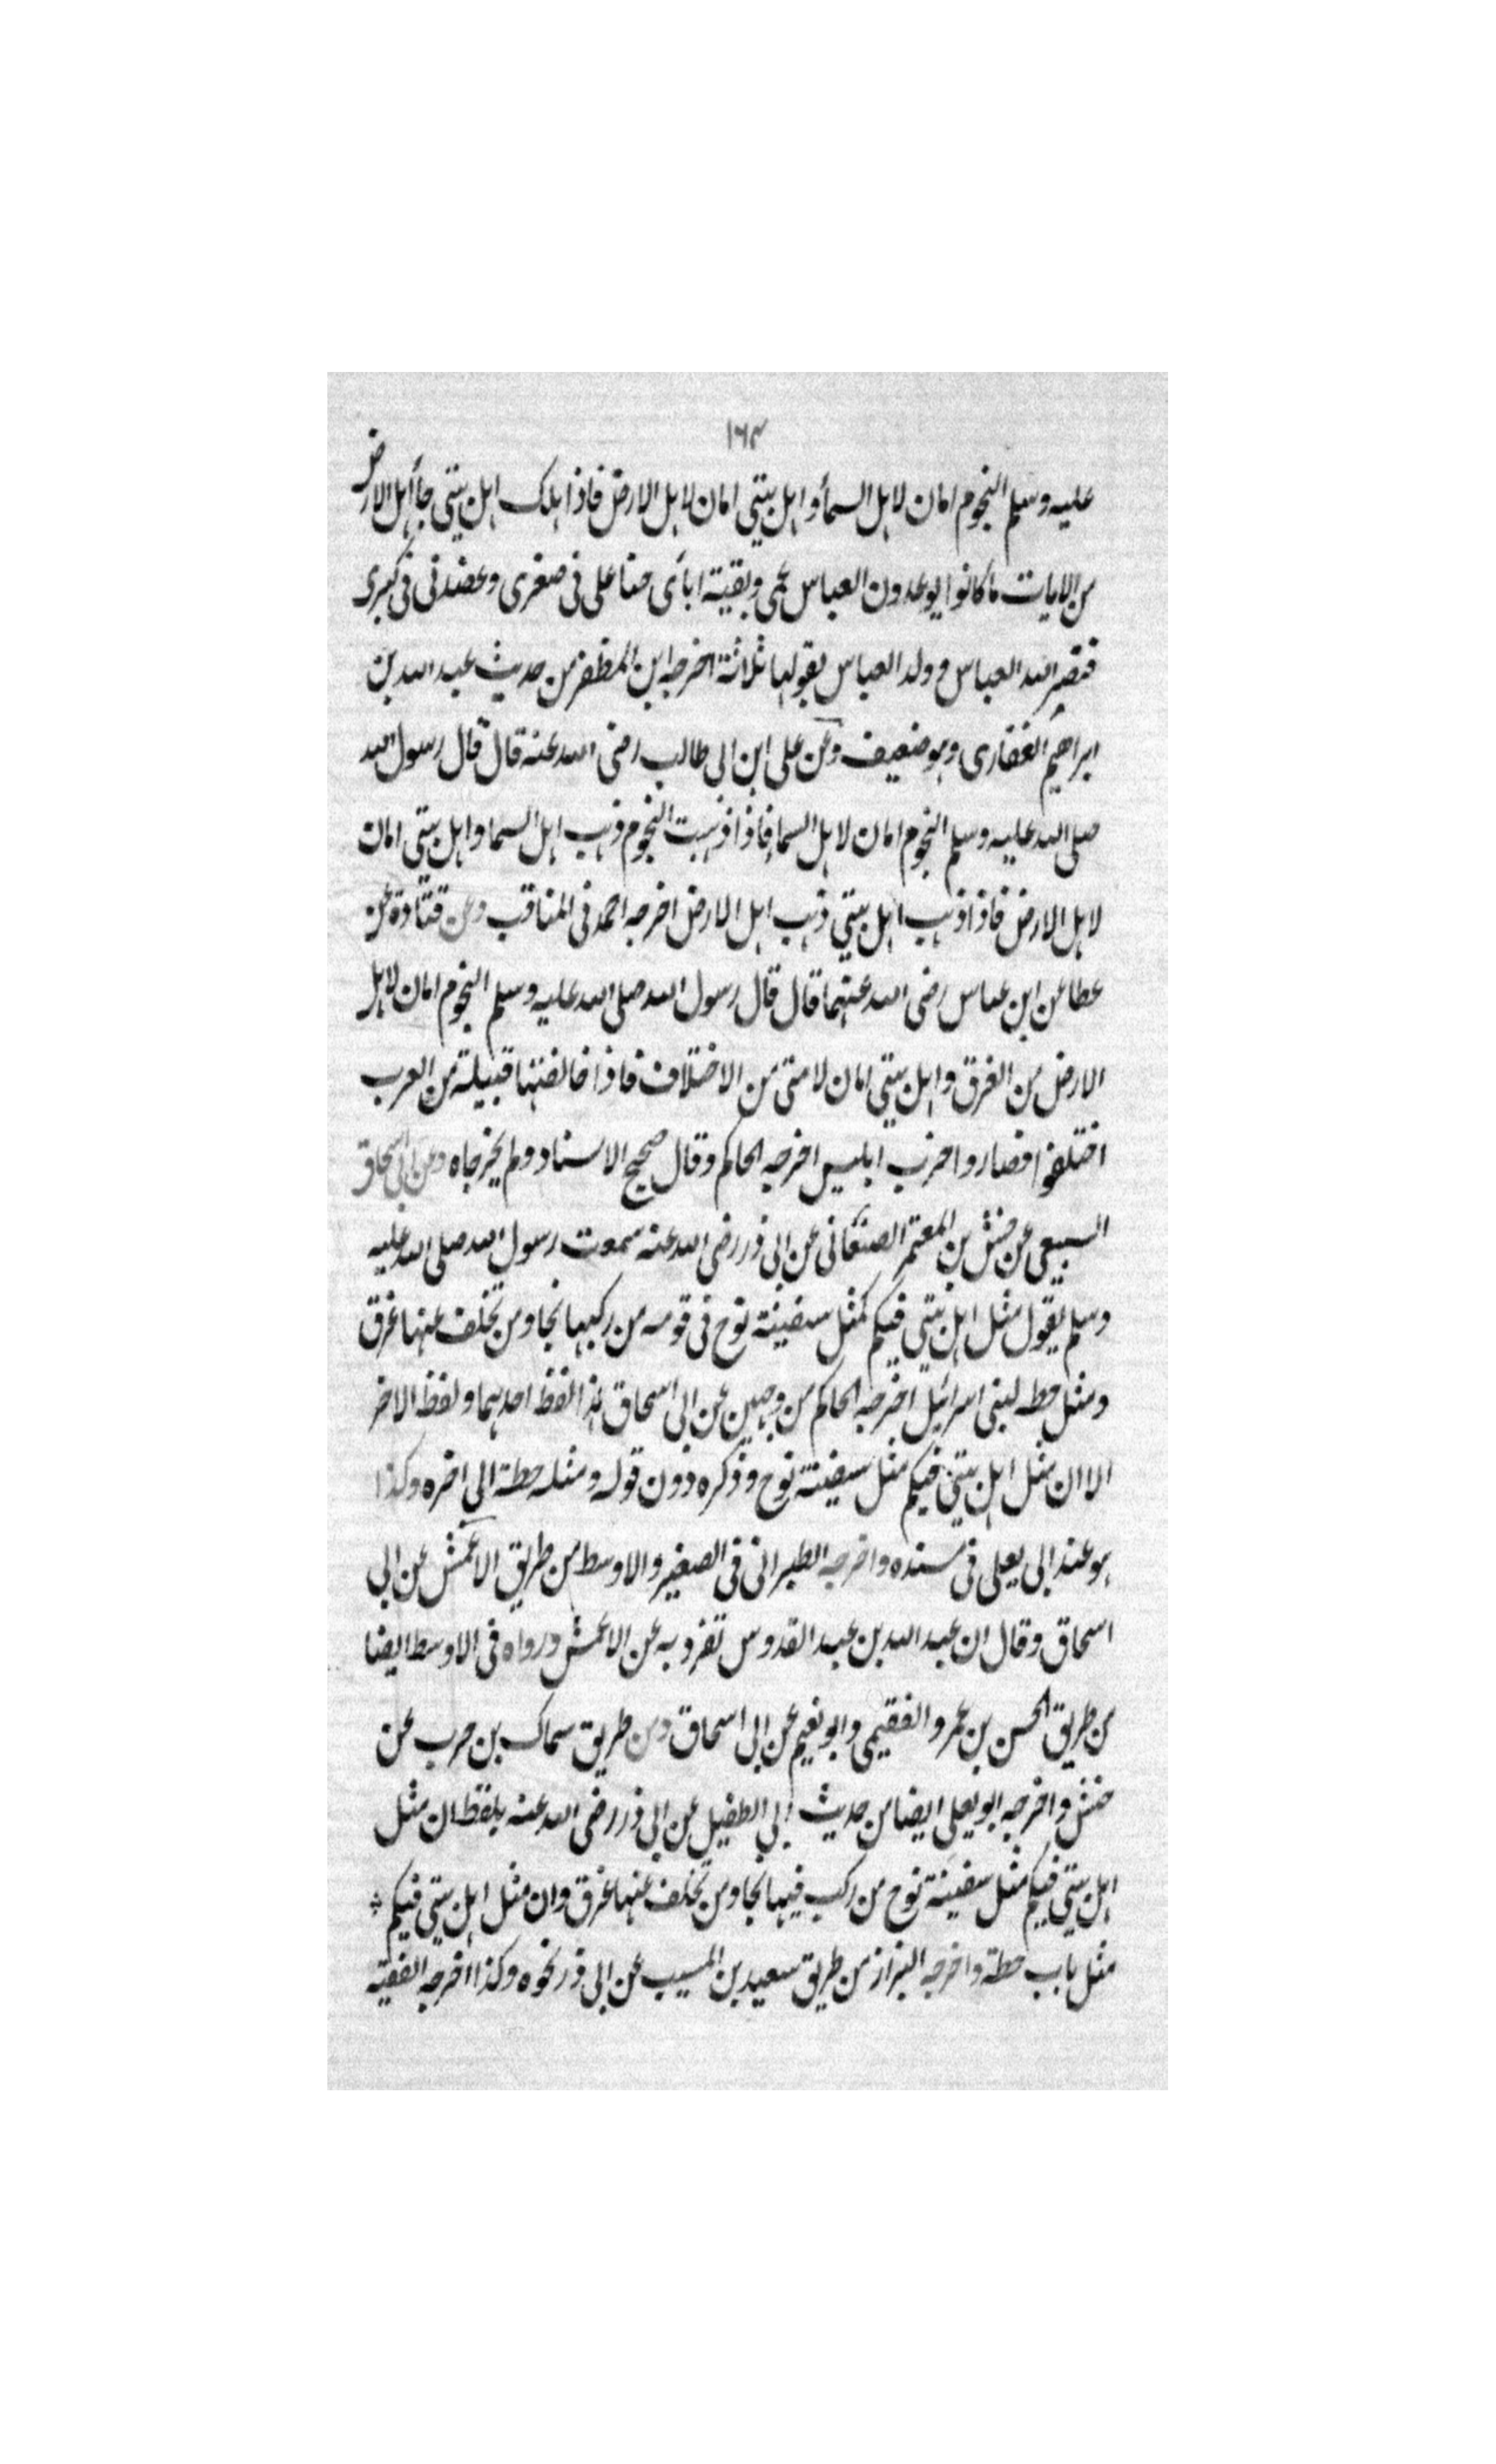 ١٦٣
عليه وسلم النجوم امان لاهل السماء و اهل بيتي امان لاهل الارض فاذا هلك اهل بيتي جاء اهل الارض
من الايات ما كانوا يوعدون العباس عمي وبقية ابائى حنا على فى صغرى وعضدنى فى كبرى
فنصر الله العباس وولد العباس يقولها ثلاثة اخرجه ابن المظفر من حديث عبد الله بن
ابراهيم الغفارى وهو ضعيف وعن على ابن ابى طالب رضى الله عنه قال قال رسول الله
صلى الله عليه وسلم النجوم امان لاهل السما فاذا ذهبت النجوم ذهب اهل السما واهل بيتى امان
لاهل الارض فاذا ذهب اهل بيتي ذهب اهل الارض اخرجه احمد فى المناقب وعن قتادة عن
عطا عن ابن عباس رضى الله عنهما قال قال رسول الله صلى الله عليه وسلم النجوم امان لاهل
الارض من الغرق واهل بيتى امان لامتى من الاختلاف فاذا خالفتها قبيلة من العرب
اختلفوا فصاروا حزب ابليس اخرجه الحاكم وقال صحيح الاسناد ولم يخرجاه وعن ابى اسحاق
السبيعى عن حنش بن المعتمر الصنعانى عن ابى ذر رضى الله عنه سمعت رسول الله صلى الله عليه
وسلم يقول مثل اهل بيتى فيكم كمثل سفينة نوح فى قومه من ركبها نجا ومن تخلف عنها غرق
ومثل حطه لبنى اسرائيل اخرجه الحاكم من وجهين عن ابى اسحاق هذا لفظ احدهما ولفظ الاخر
الا ان مثل اهل بيتى فيكم مثل سفينة نوح وذكره دون قوله ومثله حطة الى اخره وكذا
هو عند ابى يعلى فى مسنده واخرجه الطبرانى فى الصغير والاوسط من طريق الاعمش عن ابى
اسحاق وقال ان عبد الله بن عبد القدوس تفرد به عن الاعمش ورواه فى الاوسط ايضا
من طريق الحسن بن عمرو الفقيمى وابو نعيم عن ابى اسحاق ومن طريق سماك بن حرب عن
حنش واخرجه ابو يعلى ايضا من حديث ابى الطفيل عن ابى ذر رضى الله عنه بلفظ ان مثل
اهل بيتى فيكم مثل سفينة نوح من ركب فيها نجا ومن تخلف عنها غرق وان مثل اهل بيتى فيكم
مثل باب حطة واخرجه البزاز من طريق سعيد بن المسيب عن ابى ذر نحوه وكذا اخرجه الفقيه